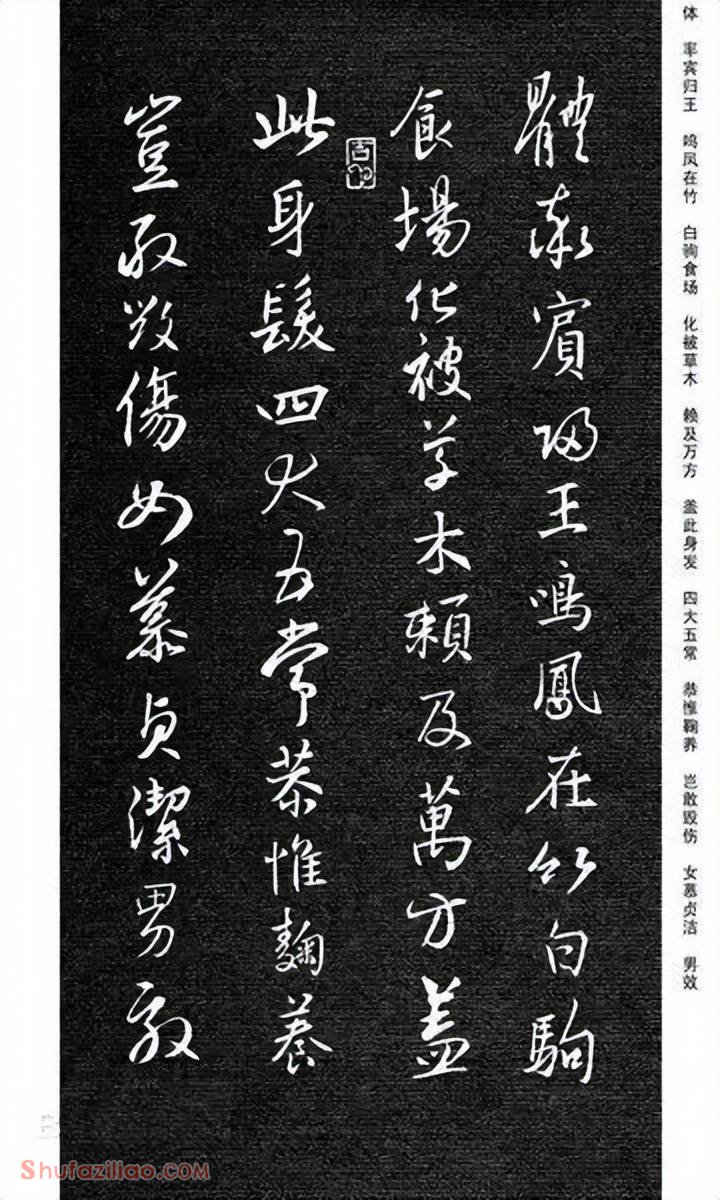 体 率宾归王 鸣凤在竹 白驹食场 化被草木 赖及万方 盖此身发 四大五常 恭惟鞠养 岂敢毁伤 女慕贞洁 男效
體率賓歸王鳴鳳在竹白駒
食場化被草木賴及萬方蓋
此身髮四大五常恭惟鞠養
豈敢毀傷女慕貞潔男效
Shufaziliao.com